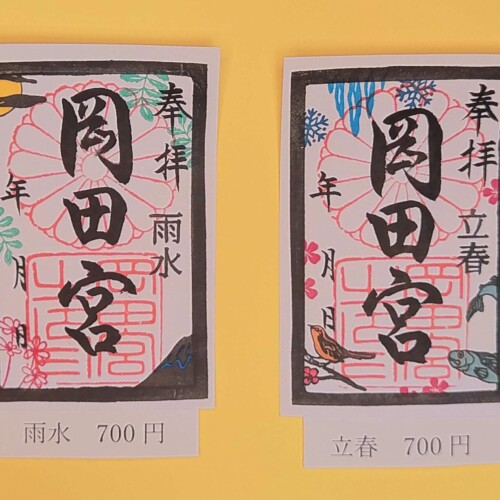 奉拝
雨水
岡田宮
年
月
日
雨水 700円
奉拝
立春
岡田宮
年
月
日
立春 700円